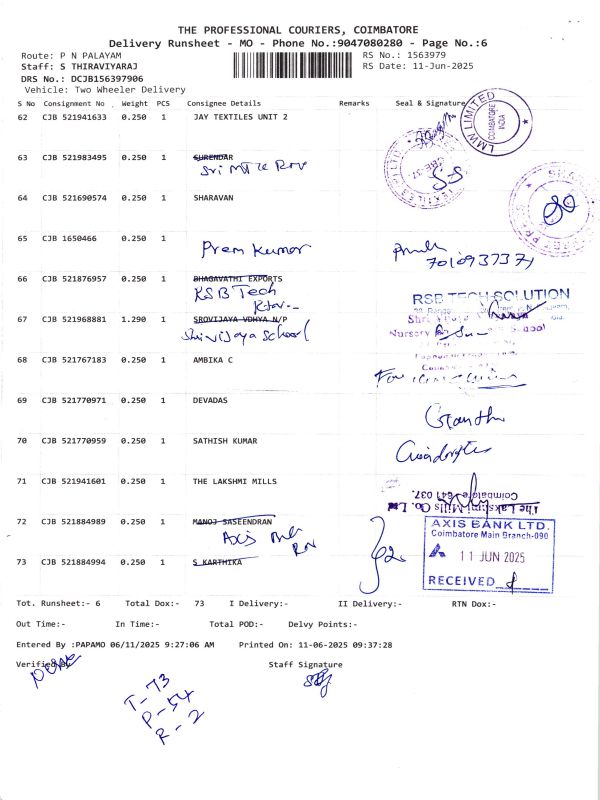 THE PROFESSIONAL COURIERS, COIMBATORE
Delivery Runsheet - MO - Phone No.:9047080280 - Page No.:6
Route: P N PALAYAM
RS No.: 1563979
Staff: S THIRAVIYARAJ
RS Date: 11-Jun-2025
DRS No.: DCJB156397906
Vehicle: Two Wheeler Delivery
S No Consignment No Weight PCS Consignee Details Remarks Seal & Signature
62 CJB 521941633 0.250 1 JAY TEXTILES UNIT 2
LMW LIMITED
COIMBATORE
INDIA
63 CJB 521983495 0.250 1 SURENDAR
64 CJB 521690574 0.250 1 SHARAVAN
65 CJB 1650466 0.250 1
Prem Kumar
7010937371
66 CJB 521876957 0.250 1 BHAGAVATHI EXPORTS
RSB Tech
RSB TECH SOLUTION
67 CJB 521968881 1.290 1 SROVIJAYA VDHYA N/P
Shrivijaya School
Nursery
School
68 CJB 521767183 0.250 1 AMBIKA C
69 CJB 521770971 0.250 1 DEVADAS
70 CJB 521770959 0.250 1 SATHISH KUMAR
71 CJB 521941601 0.250 1 THE LAKSHMI MILLS
The Lakshmi Mills Co. Ltd
Coimbatore - 641 037.
72 CJB 521884989 0.250 1 MANOJ SASEENDRAN
Axis
AXIS BANK LTD.
Coimbatore Main Branch-090
11 JUN 2025
RECEIVED
73 CJB 521884994 0.250 1 S KARTHIKA
Tot. Runsheet:- 6 Total Dox:- 73 I Delivery:- II Delivery:- RTN Dox:-
Out Time:- In Time:- Total POD:- Delvy Points:-
Entered By :PAPAMO 06/11/2025 9:27:06 AM Printed On: 11-06-2025 09:37:28
Verified By Staff Signature
T-73
P-54
R-2